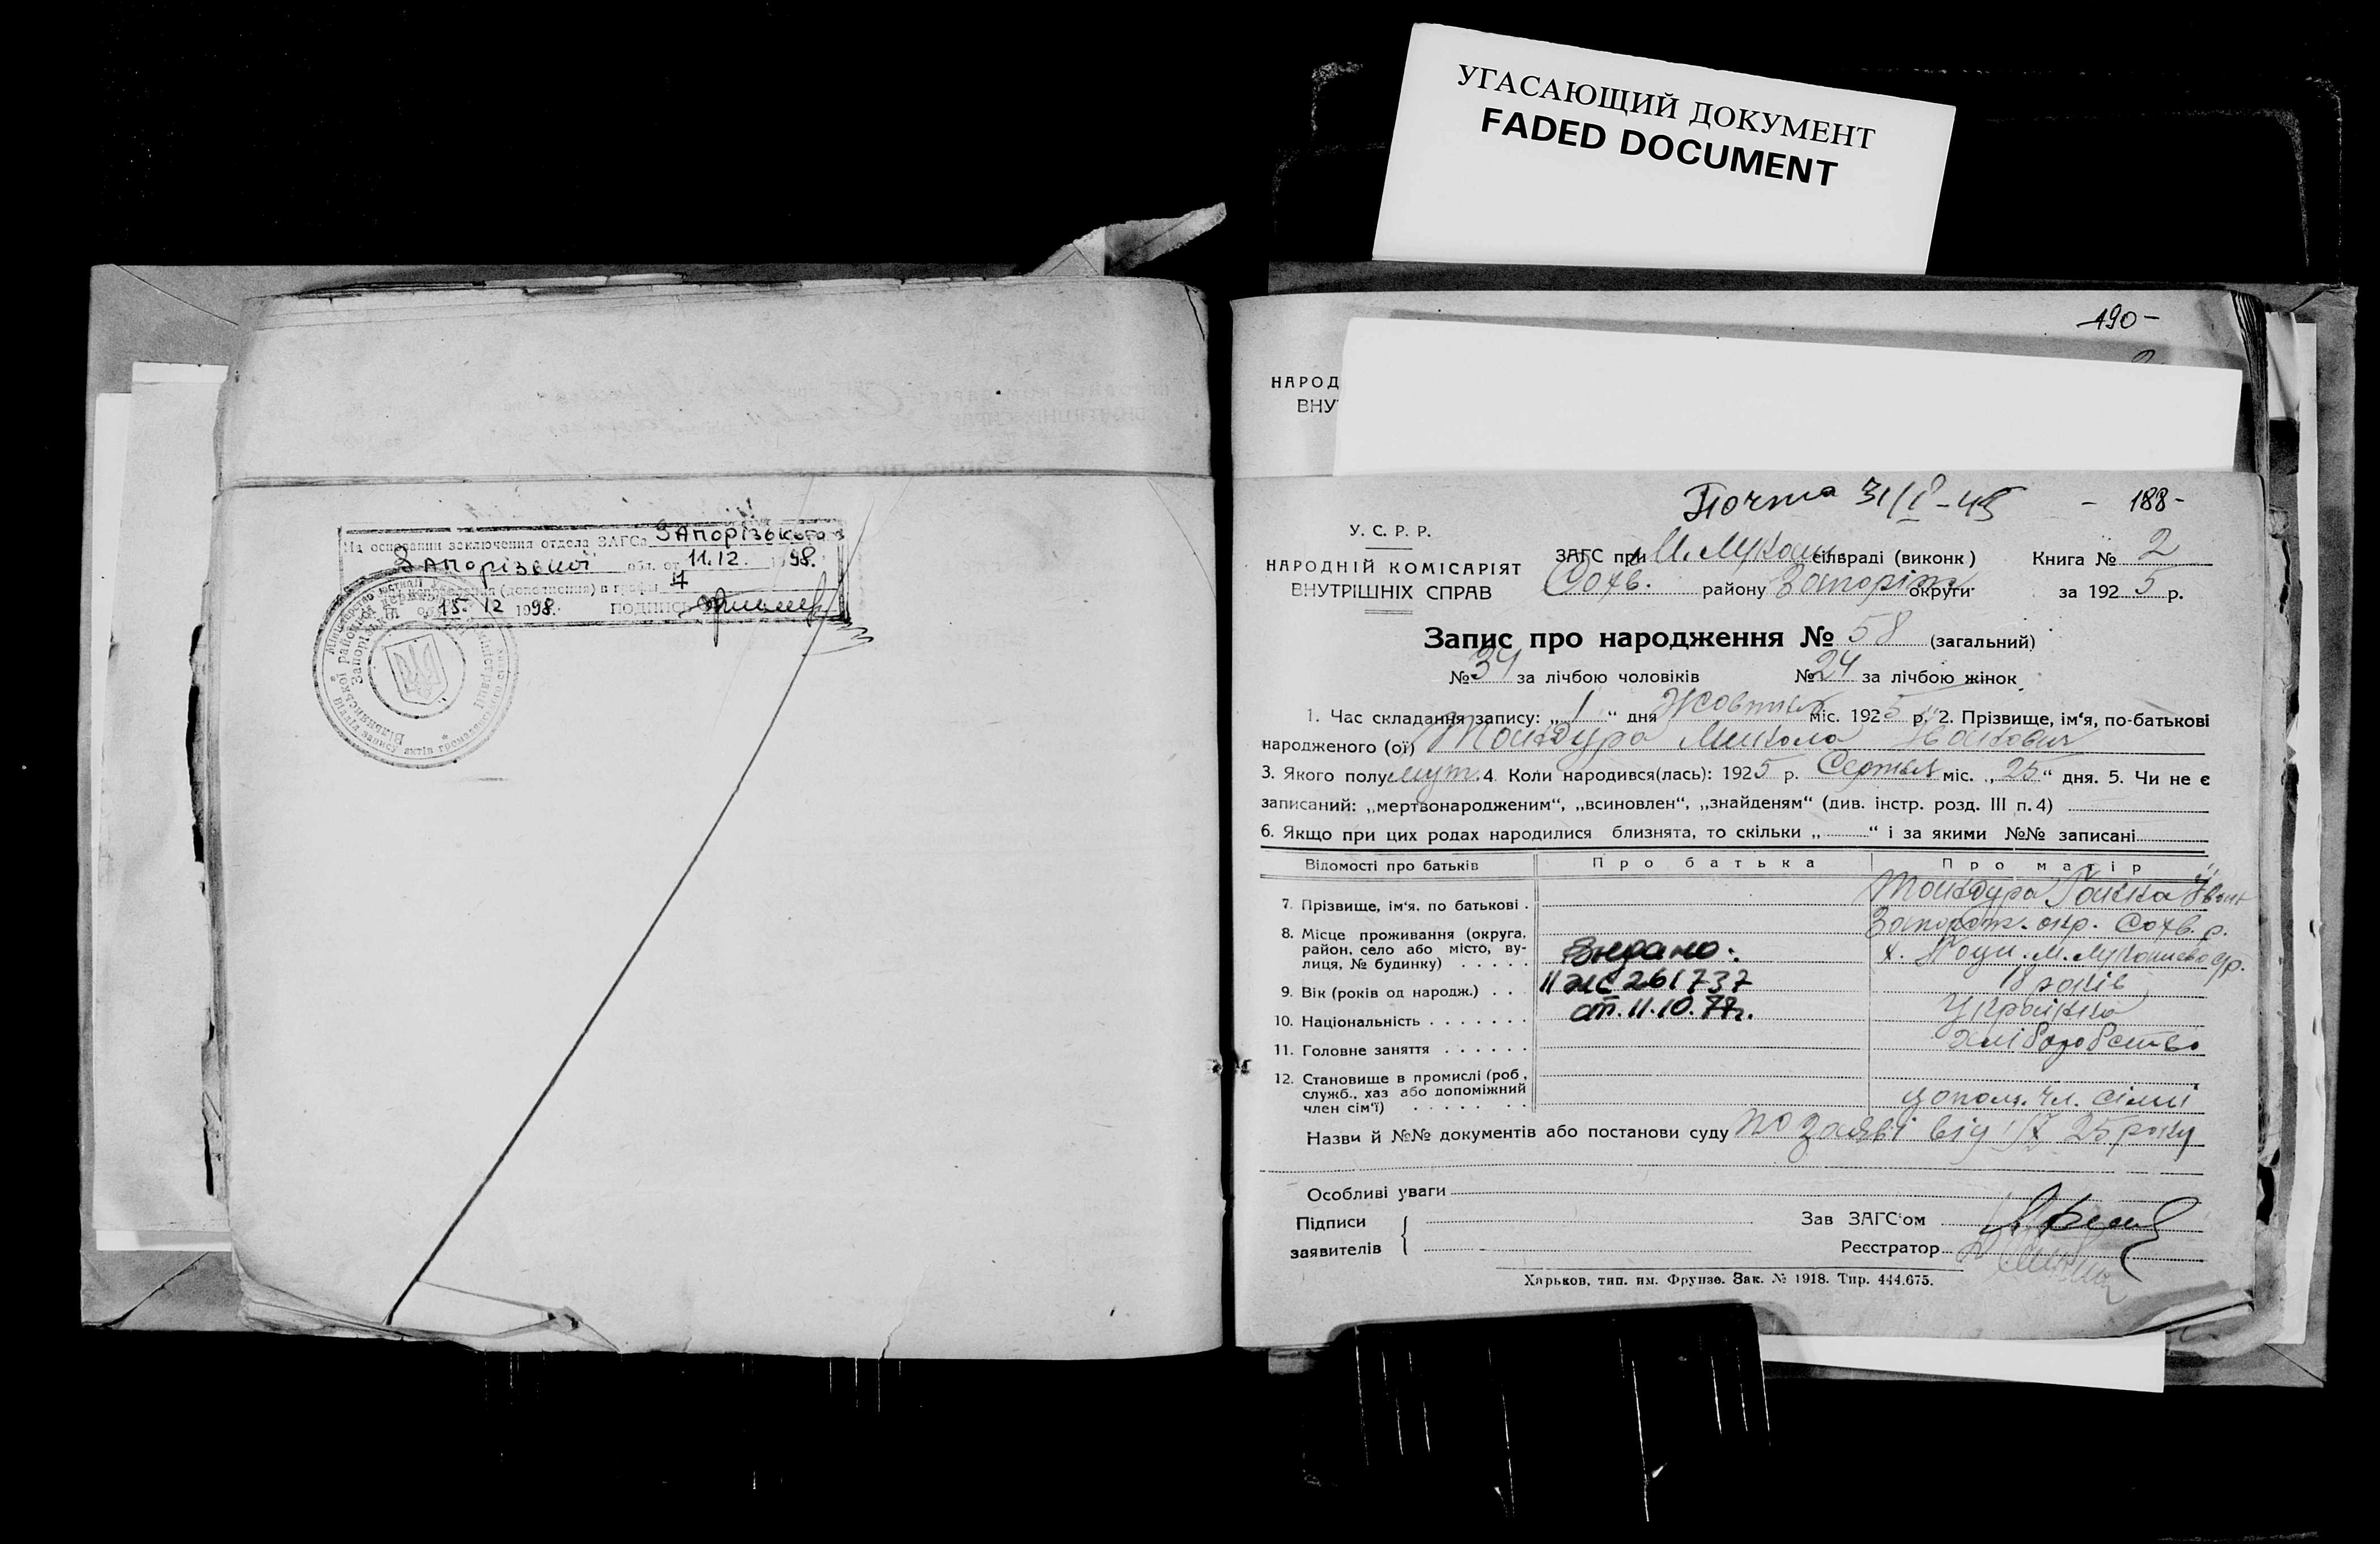 УГАСАЮЩИЙ ДОКУМЕНТ
FADED DOCUMENT
На основании заключения отдела ЗАГСа Запорізького
Запорізької обл. от 11.12. 1998.
(дополнения) в графы 7
15. 12 1998. ПОДПИСЬ
-190-
НАРОД
ВНУ
Почта 31/I-45 -188-
У. С. Р. Р.
НАРОДНІЙ КОМІСАРІЯТ
ВНУТРІШНІХ СПРАВ
ЗАГС при сільраді (виконк) Книга № 2
Софв. району Запоріж округи за 1925 р.
Запис про народження № 58 (загальний)
№ 34 за лічбою чоловіків № 24 за лічбою жінок
1. Час складання запису: „ 1 “ дня Жовтня міс. 1925 р. 2. Прізвище, ім‘я, по-батькові
народженого (ої) Микола Іванович
3. Якого полу муж. 4. Коли народився(лась): 1925 р. Серпня міс. „ 25 “ дня. 5. Чи не є
записаний: „мертвонародженим“, „всиновлен“, „знайденям“ (див. інстр. розд. III п. 4)
6. Якщо при цих родах народилися близнята, то скільки „ “ і за якими №№ записані
Відомості про батьків Про батька Про матір
7. Прізвище, ім‘я, по батькові Ганна Іван
8. Місце проживання (округа, район, село або місто, вулиця, № будинку) Запорож. окр. Софв. р.
Видано:
9. Вік (років од народж.) II ЖС 261737 18 років
10. Національність от. 11.10.77г. Українка
11. Головне заняття Хліборобство
12. Становище в промислі (роб., служб., хаз або допоміжний член сім‘ї) допом. чл. сімї
Назви й №№ документів або постанови суду по заяві від 1/X 25 року
Особливі уваги
Підписи заявителів
Зав ЗАГС‘ом
Реєстратор
Харьков, тип. им. Фрунзе. Зак. № 1918. Тир. 444.675.